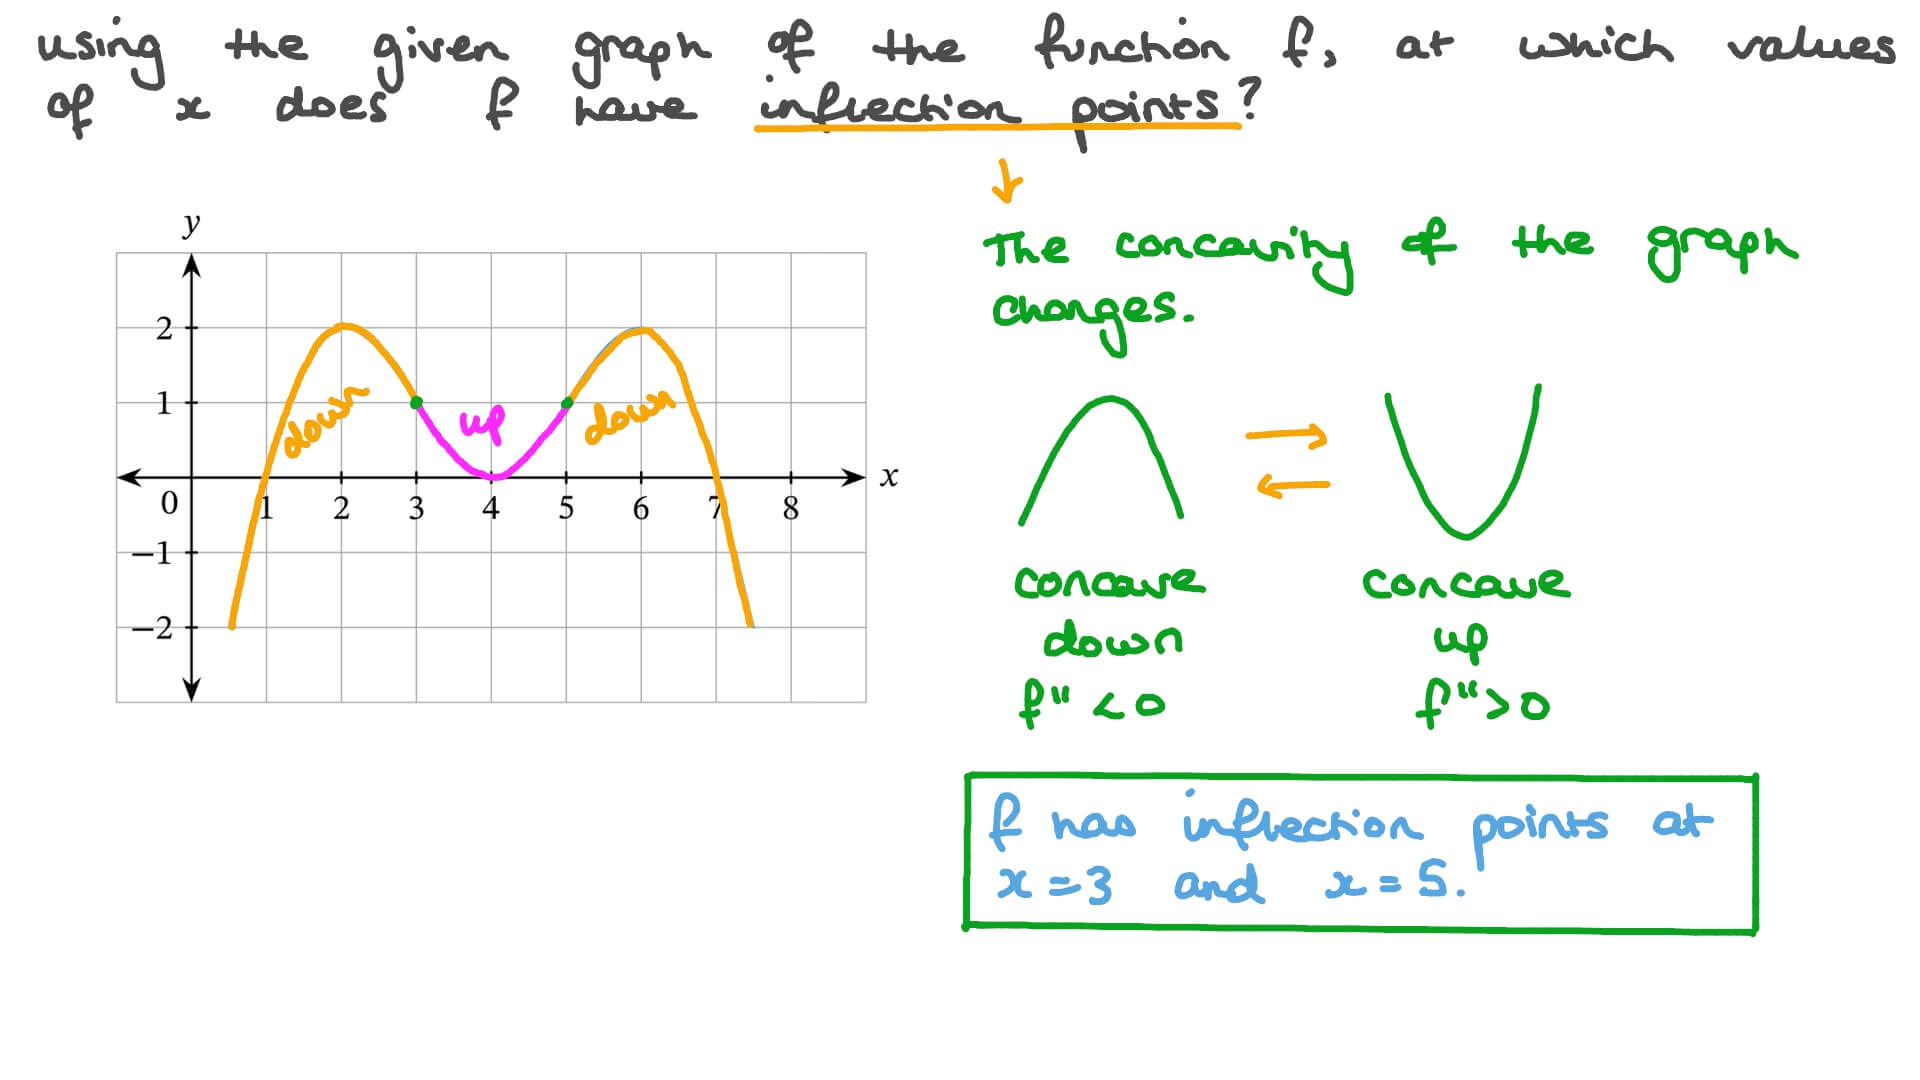 using the given graph of the function f, at which values
of x does f have inflection points?
The concavity of the graph
changes.
y
2
1
0
-1
-2
1 2 3 4 5 6 7 8
x
down
up
down
concave
down
f" < 0
concave
up
f" > 0
f has inflection points at
x = 3 and x = 5.